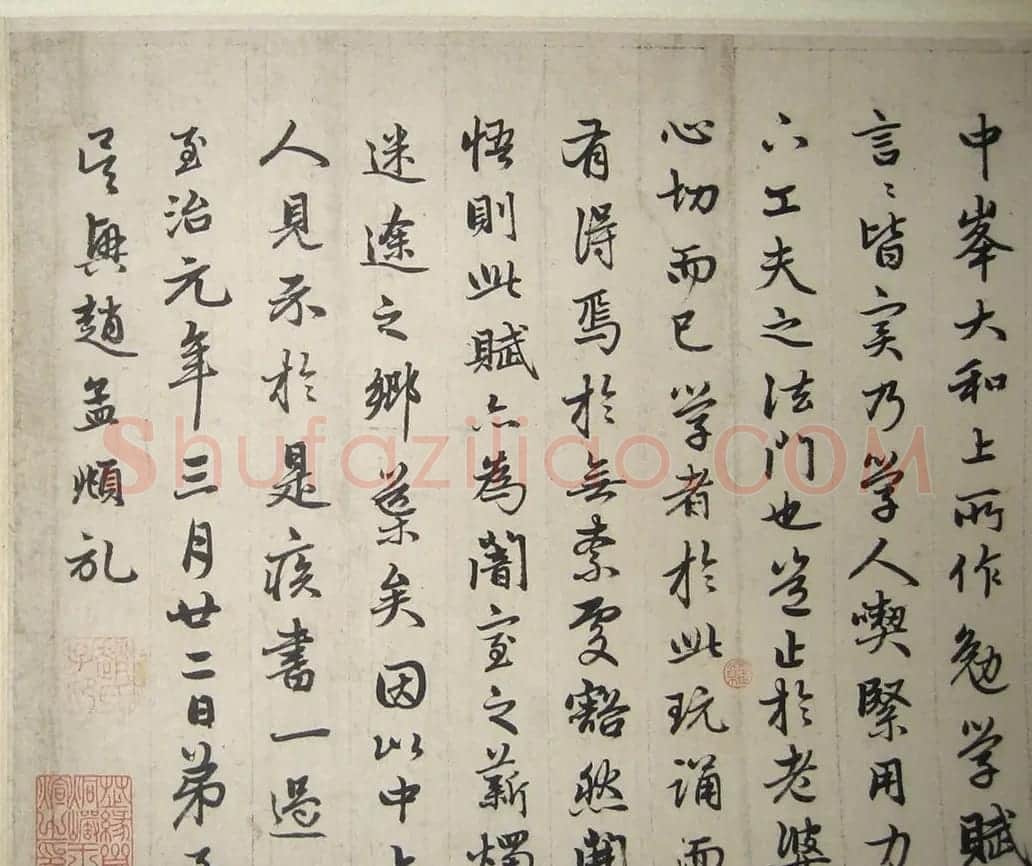 中峯大和上所作勉学賦
言〻皆实乃学人喫緊用力
下工夫之法門也豈止於老婆
心切而已学者於此玩誦而
有得焉於無索處豁然開
悟則此賦亦為闇室之薪燭
迷途之鄉導矣因以中上
人見示於是疾書一過
至治元年三月廿二日弟子
吳興趙孟頫
趙氏子昂
Shufaziliao.COM